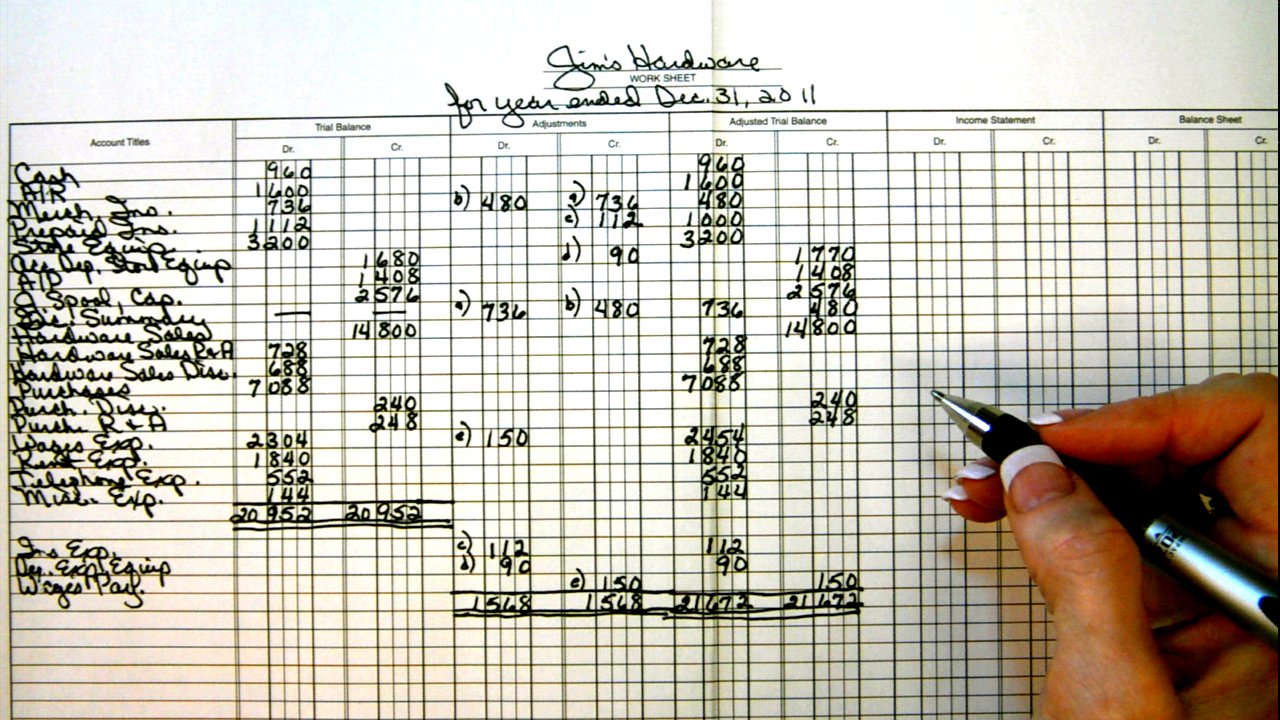 Jim's Hardware
WORK SHEET
for year ended Dec. 31, 2011
Account Titles Trial Balance Adjustments Adjusted Trial Balance Income Statement Balance Sheet
Dr. Cr. Dr. Cr. Dr. Cr. Dr. Cr. Dr. Cr.
Cash 960 960
A/R 1600 1600
Merch. Inv. 736 b) 480 a) 736 480
Prepaid Ins. 1112 c) 112 1000
Store Equip. 3200 3200
Acc. Dep. Store Equip 1680 d) 90 1770
A/P 1408 1408
J. Spool, Cap. 2576 2576
Inc. Summary — — a) 736 b) 480 736 480
Hardware Sales 14800 14800
Hardware Sales R&A 728 728
Hardware Sales Disc. 688 688
Purchases 7088 7088
Purch. Disc. 240 240
Purch. R&A 248 248
Wages Exp. 2304 e) 150 2454
Rent Exp. 1840 1840
Telephone Exp. 552 552
Misc. Exp. 144 144
20952 20952
Ins Exp. c) 112 112
Dep. Exp. Equip d) 90 90
Wages Pay. e) 150 150
1568 1568 21672 21672